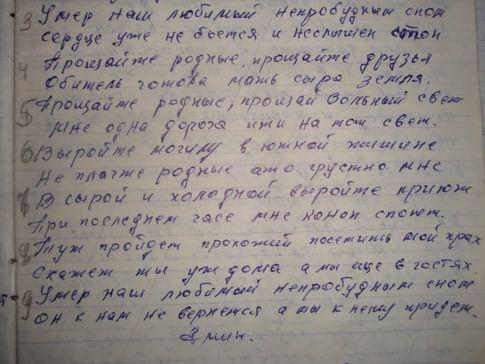 3 Умер наш любимый непробудным сном
сердце уже не бьется и неслышен стон
4 Прощайте родные, прощайте друзья
Обитель готова мать сыра земля.
5 Прощайте родные, прощай вольный свет
Мне одна дорога ити на тот свет.
6 Выройте могилу в южной тишине
Не плачте родные ато грустно мне
7 В сырой и холодной выройте приют
При последнем часе мне канон споют.
8 Тут пройдет прохожий посетить мой прах
Скажет ты уж дома а мы еще в гостях.
9 Умер наш любимый непробудным сном
он к нам не вернется а мы к нему придем.
Аминь.